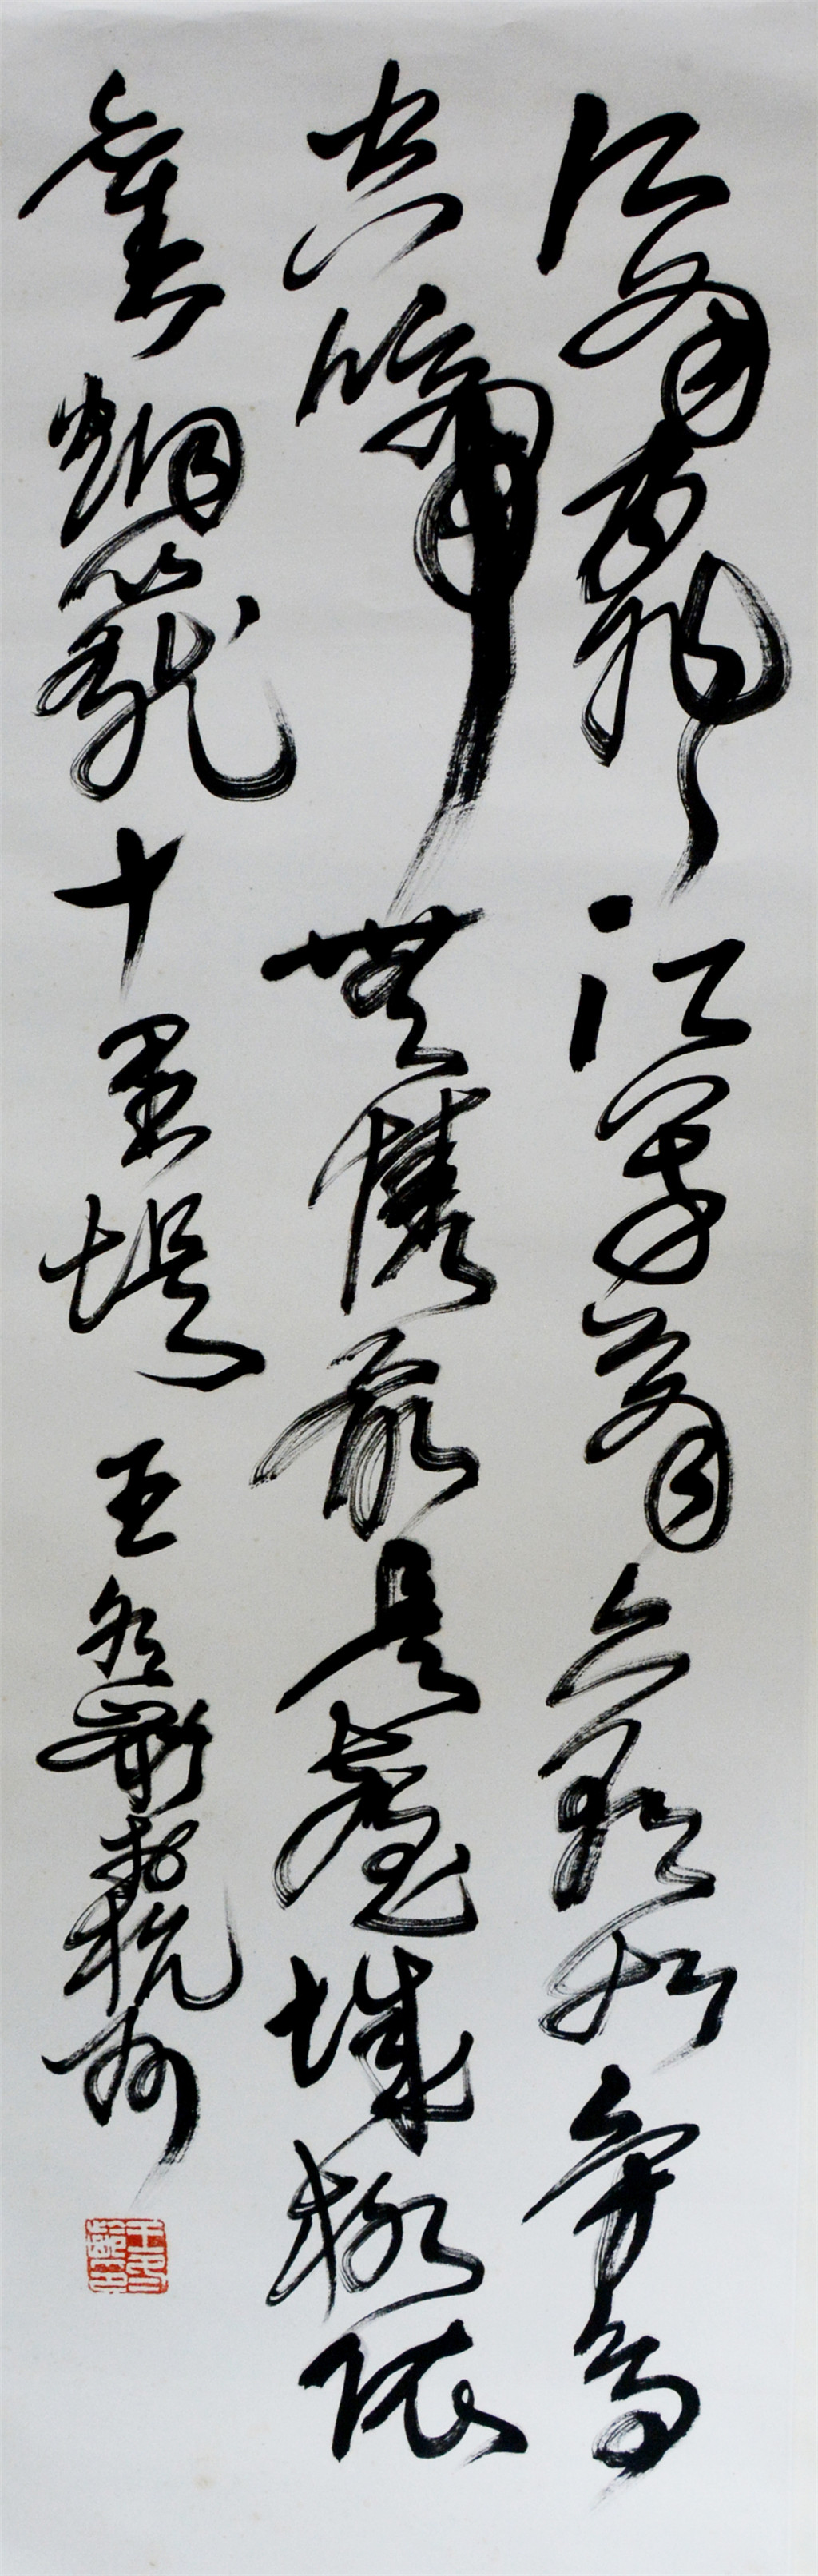 江雨霏々江草齊六朝如夢鳥
空啼無情最是臺城柳依
舊烟籠十里堤
王冬齡於杭州
王冬齡印